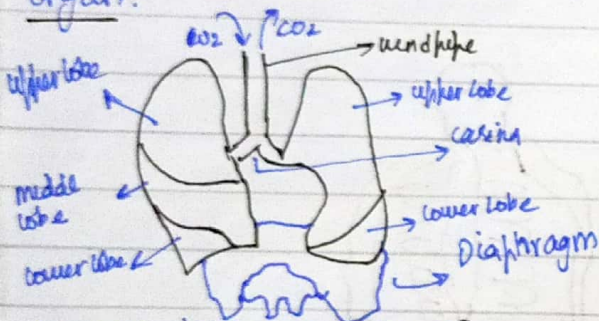 organ.
CO2 CO2
windpipe
upper lobe
upper lobe
carina
middle
lobe
lower lobe
lower lobe
Diaphragm